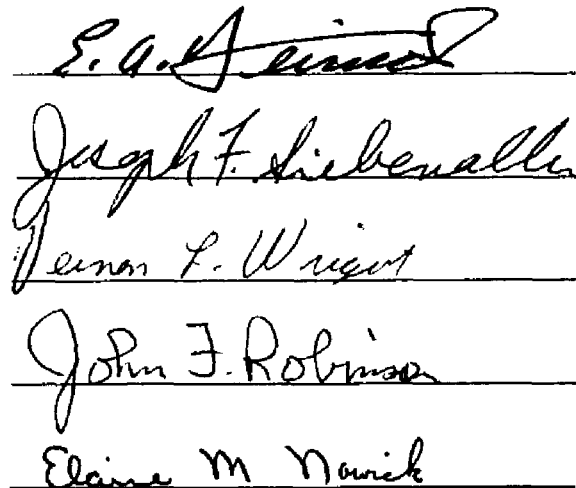 E. A.
Joseph F. Siebenaller
Vernon L. Wright
John F. Robinson
Elaine M Nowick